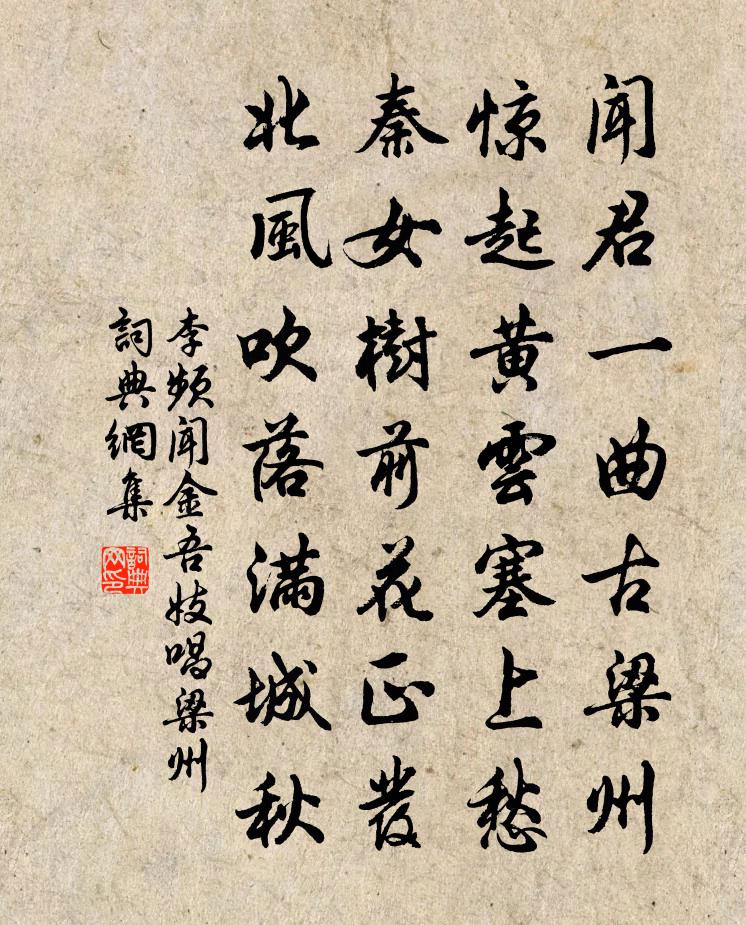 闻君一曲古梁州
惊起黄雲塞上愁
秦女樹前花正發
北風吹落满城秋
李频闻金吾妓唱梁州
詞典網集
詞典網印